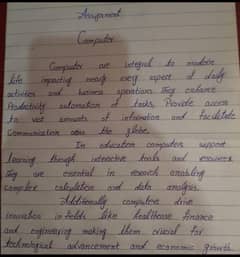 Assignment
Computer
Computer are integral to modern
life impacting nearly every aspect of daily
activities and business operations They enhance
Productivity automation of tasks, Provide access
to vast amounts of information and facilitate
Communication across the globe.
In education computers support
learning through interactive tools and resources
They are essential in research enabling
complex calculation and data analysis.
Additionally computers drive
innovation in fields like healthcare finance
and engineering making them crucial for
technological advancement and economic growth